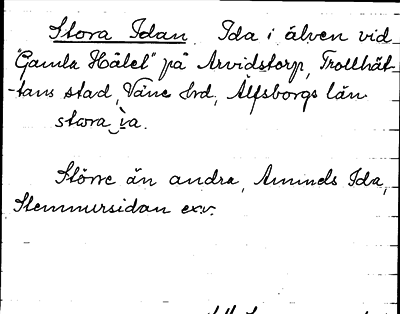 Stora Idan Ida i älven vid
"Gamla Hålet" på Arvidstorp, Trollhät-
-tans stad, Väne hrd, Älfsborgs län
stora
Större än andra, Ida,
Stemmersidan